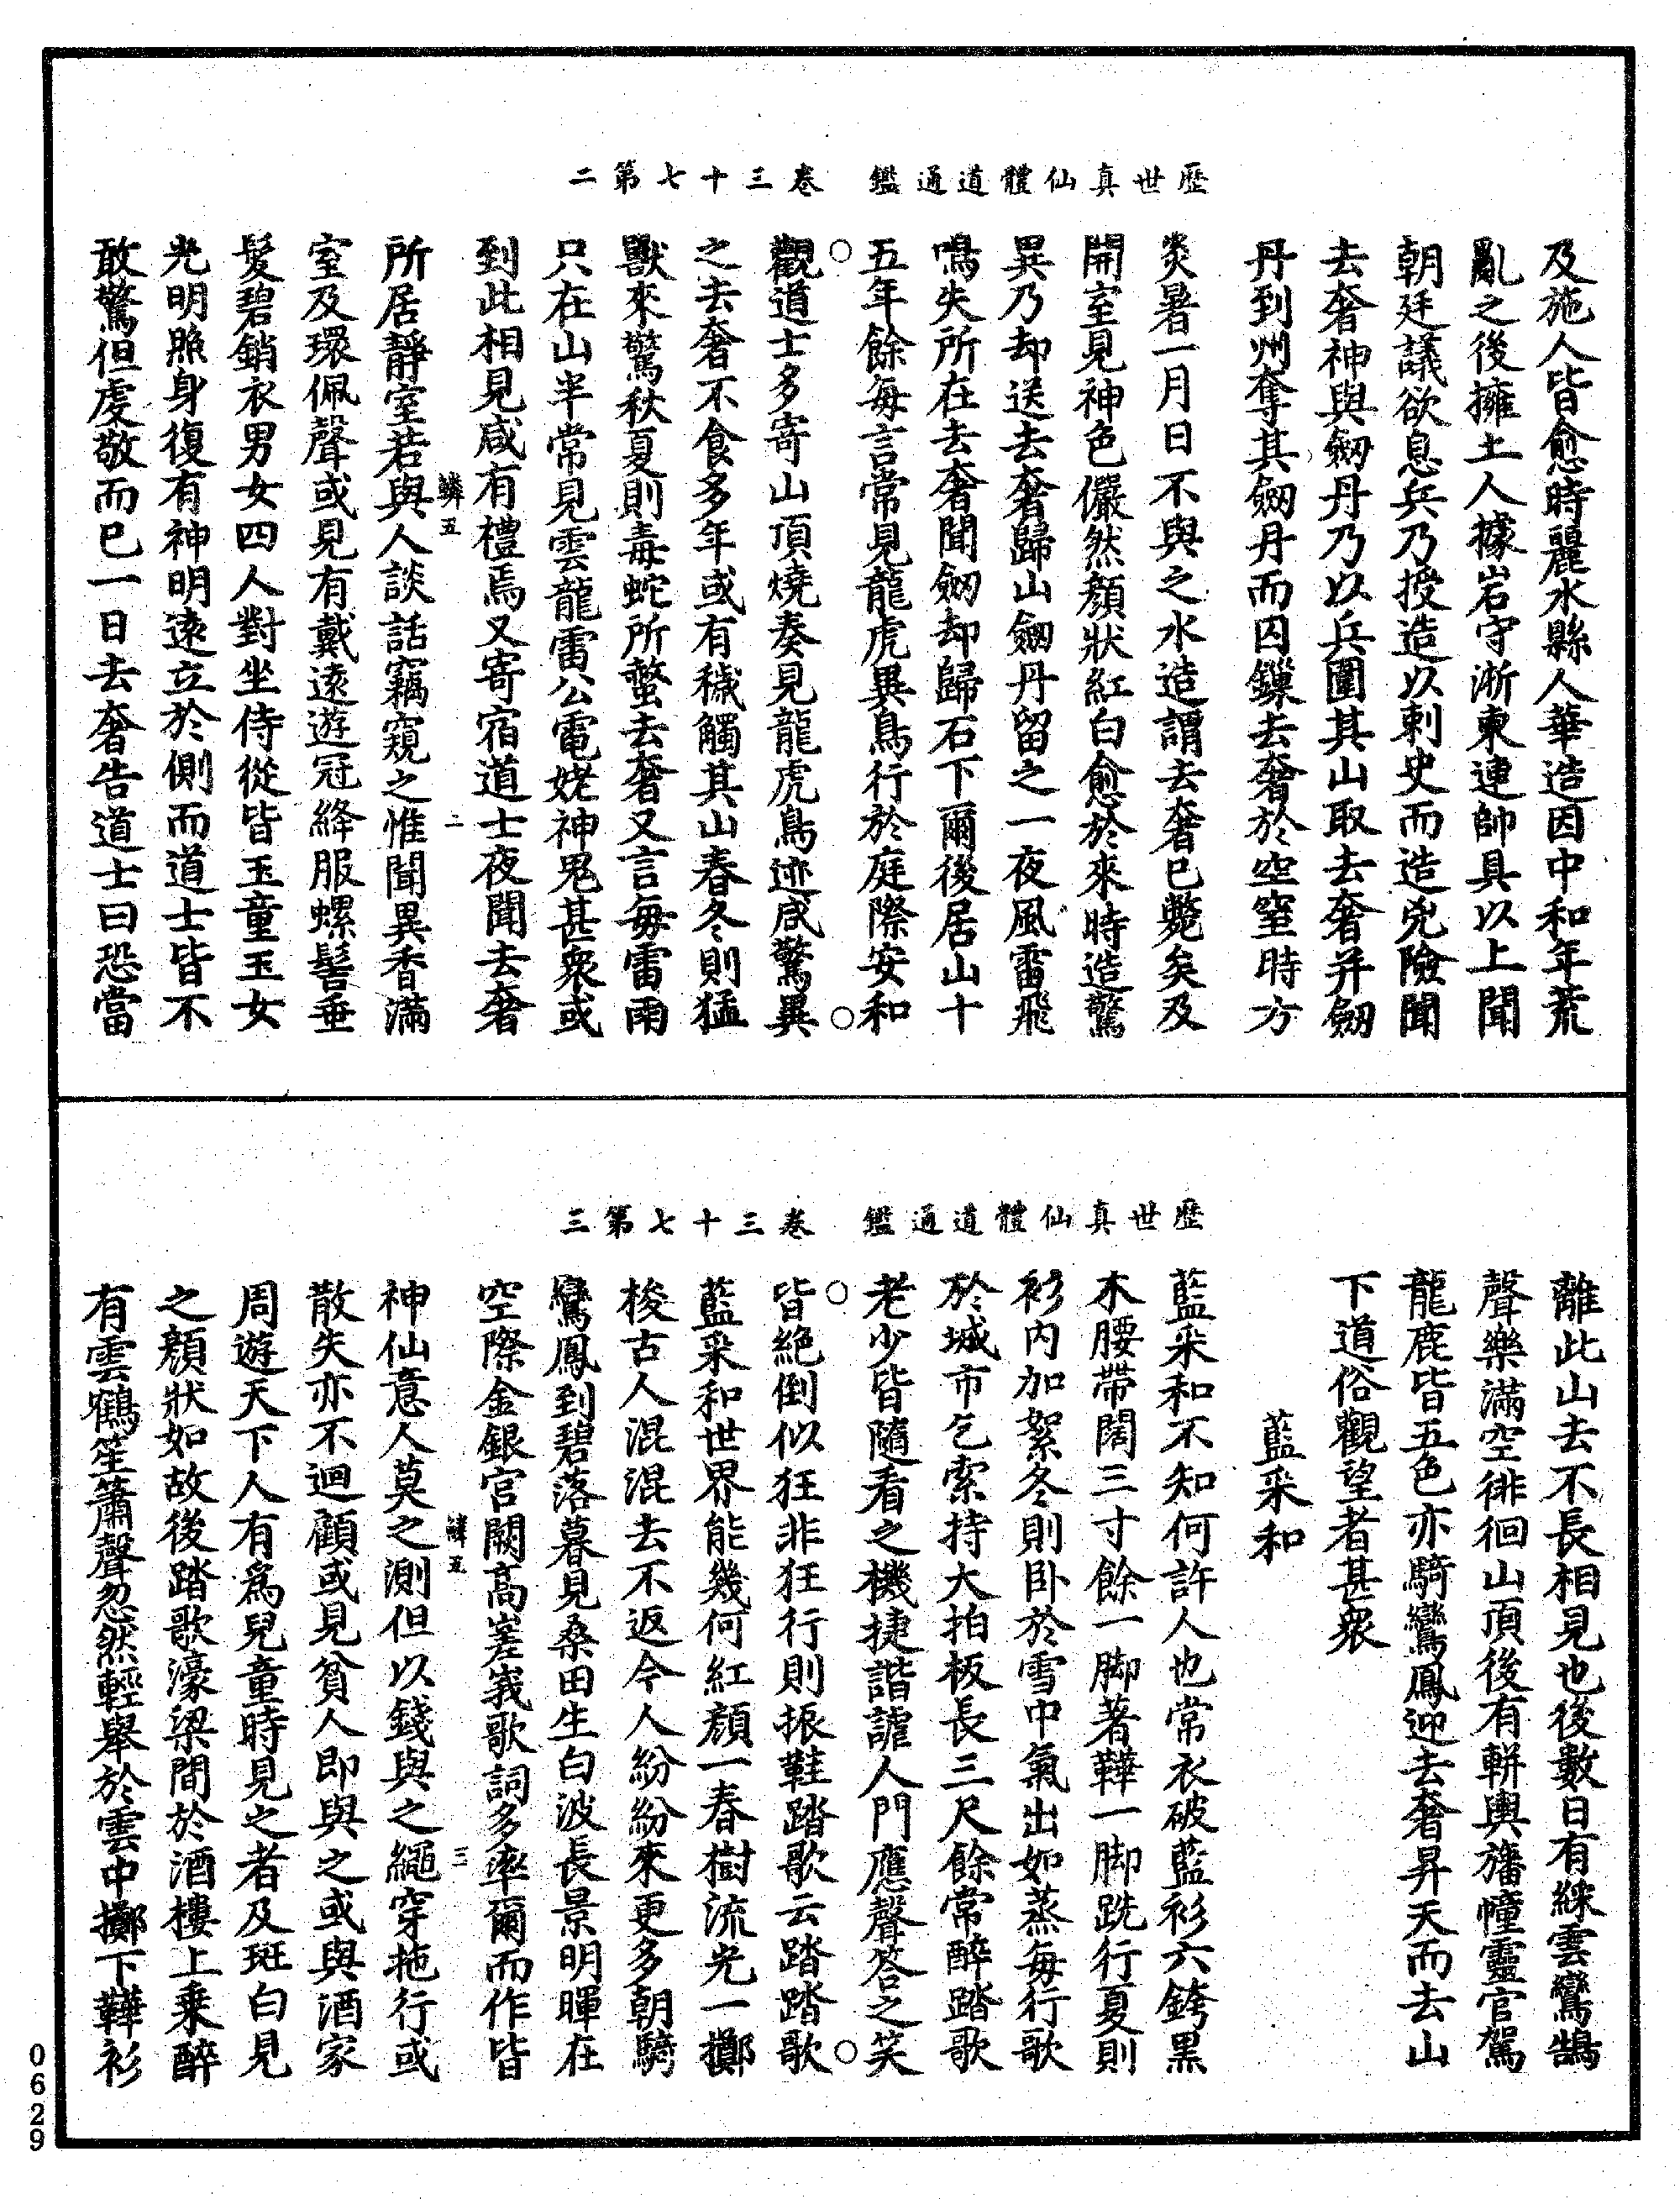 歷世真仙體道通鑑　卷三十七第二
及施人皆愈時麗水縣人華造因中和年荒
亂之後擁土人據岩守淅東連帥具以上聞
朝廷議欲息兵乃授造以刺史而造兇險聞
去奢神與劒丹乃以兵圍其山取去奢并劒
丹到州奪其劒丹而囚鏁去奢於空室時方
炎暑一月日不與之水造謂去奢已斃矣及
開室見神色儼然顏狀紅白愈於來時造驚
異乃却送去奢歸山劒丹留之一夜風雷飛
鳴失所在去奢聞劒却歸石下爾後居山十
五年餘每言常見龍虎異鳥行於庭際安和
觀道士多寄山頂燒奏見龍虎鳥迹咸驚異
之去奢不食多年或有穢觸其山春冬則猛
獸來驚秋夏則毒蛇所螫去奢又言每雷雨
只在山半常見雲龍雷公電姥神鬼甚眾或
到此相見咸有禮焉又寄宿道士夜聞去奢
鱗五　二
所居靜室若與人談話竊窺之惟聞異香滿
室及環佩聲或見有戴遠遊冠絳服螺髻垂
髮碧綃衣男女四人對坐侍從皆玉童玉女
光明照身復有神明遠立於側而道士皆不
敢驚但虔敬而已一日去奢告道士曰恐當
歷世真仙體道通鑑　卷三十七第三
離此山去不長相見也後數日有綵雲鸞鵠
聲樂滿空徘徊山頂後有軿輿旛幢靈官駕
龍鹿皆五色亦騎鸞鳳迎去奢昇天而去山
下道俗觀望者甚眾
藍采和
藍采和不知何許人也常衣破藍衫六銙黑
木腰帶闊三寸餘一脚著鞾一脚跣行夏則
衫內加絮冬則卧於雪中氣出如蒸每行歌
於城市乞索持大拍板長三尺餘常醉踏歌
老少皆隨看之機捷諧謔人門應聲答之笑
皆絕倒似狂非狂行則振鞋踏歌云踏踏歌
藍采和世界能幾何紅顏一春樹流光一擲
梭古人混混去不返今人紛紛來更多朝騎
鸞鳳到碧落暮見桑田生白波長景明暉在
空際金銀宮闕高嵳峩歌詞多率爾而作皆
鱗五　三
神仙意人莫之測但以錢與之繩穿拖行或
散失亦不迴顧或見貧人即與之或與酒家
周遊天下人有為兒童時見之者及斑白見
之顏狀如故後踏歌濠梁間於酒樓上乘醉
有雲鶴笙簫聲忽然輕舉於雲中擲下鞾衫
0629